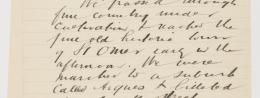 We passed through
fine country under
cultivation & reached the
fine old historic town
of St Omer early in the
afternoon. We were
marched to a suburb
called Arques & billeted